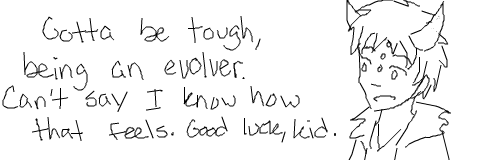 Gotta be tough,
being an evolver.
Can't say I know how
that feels. Good luck, kid.